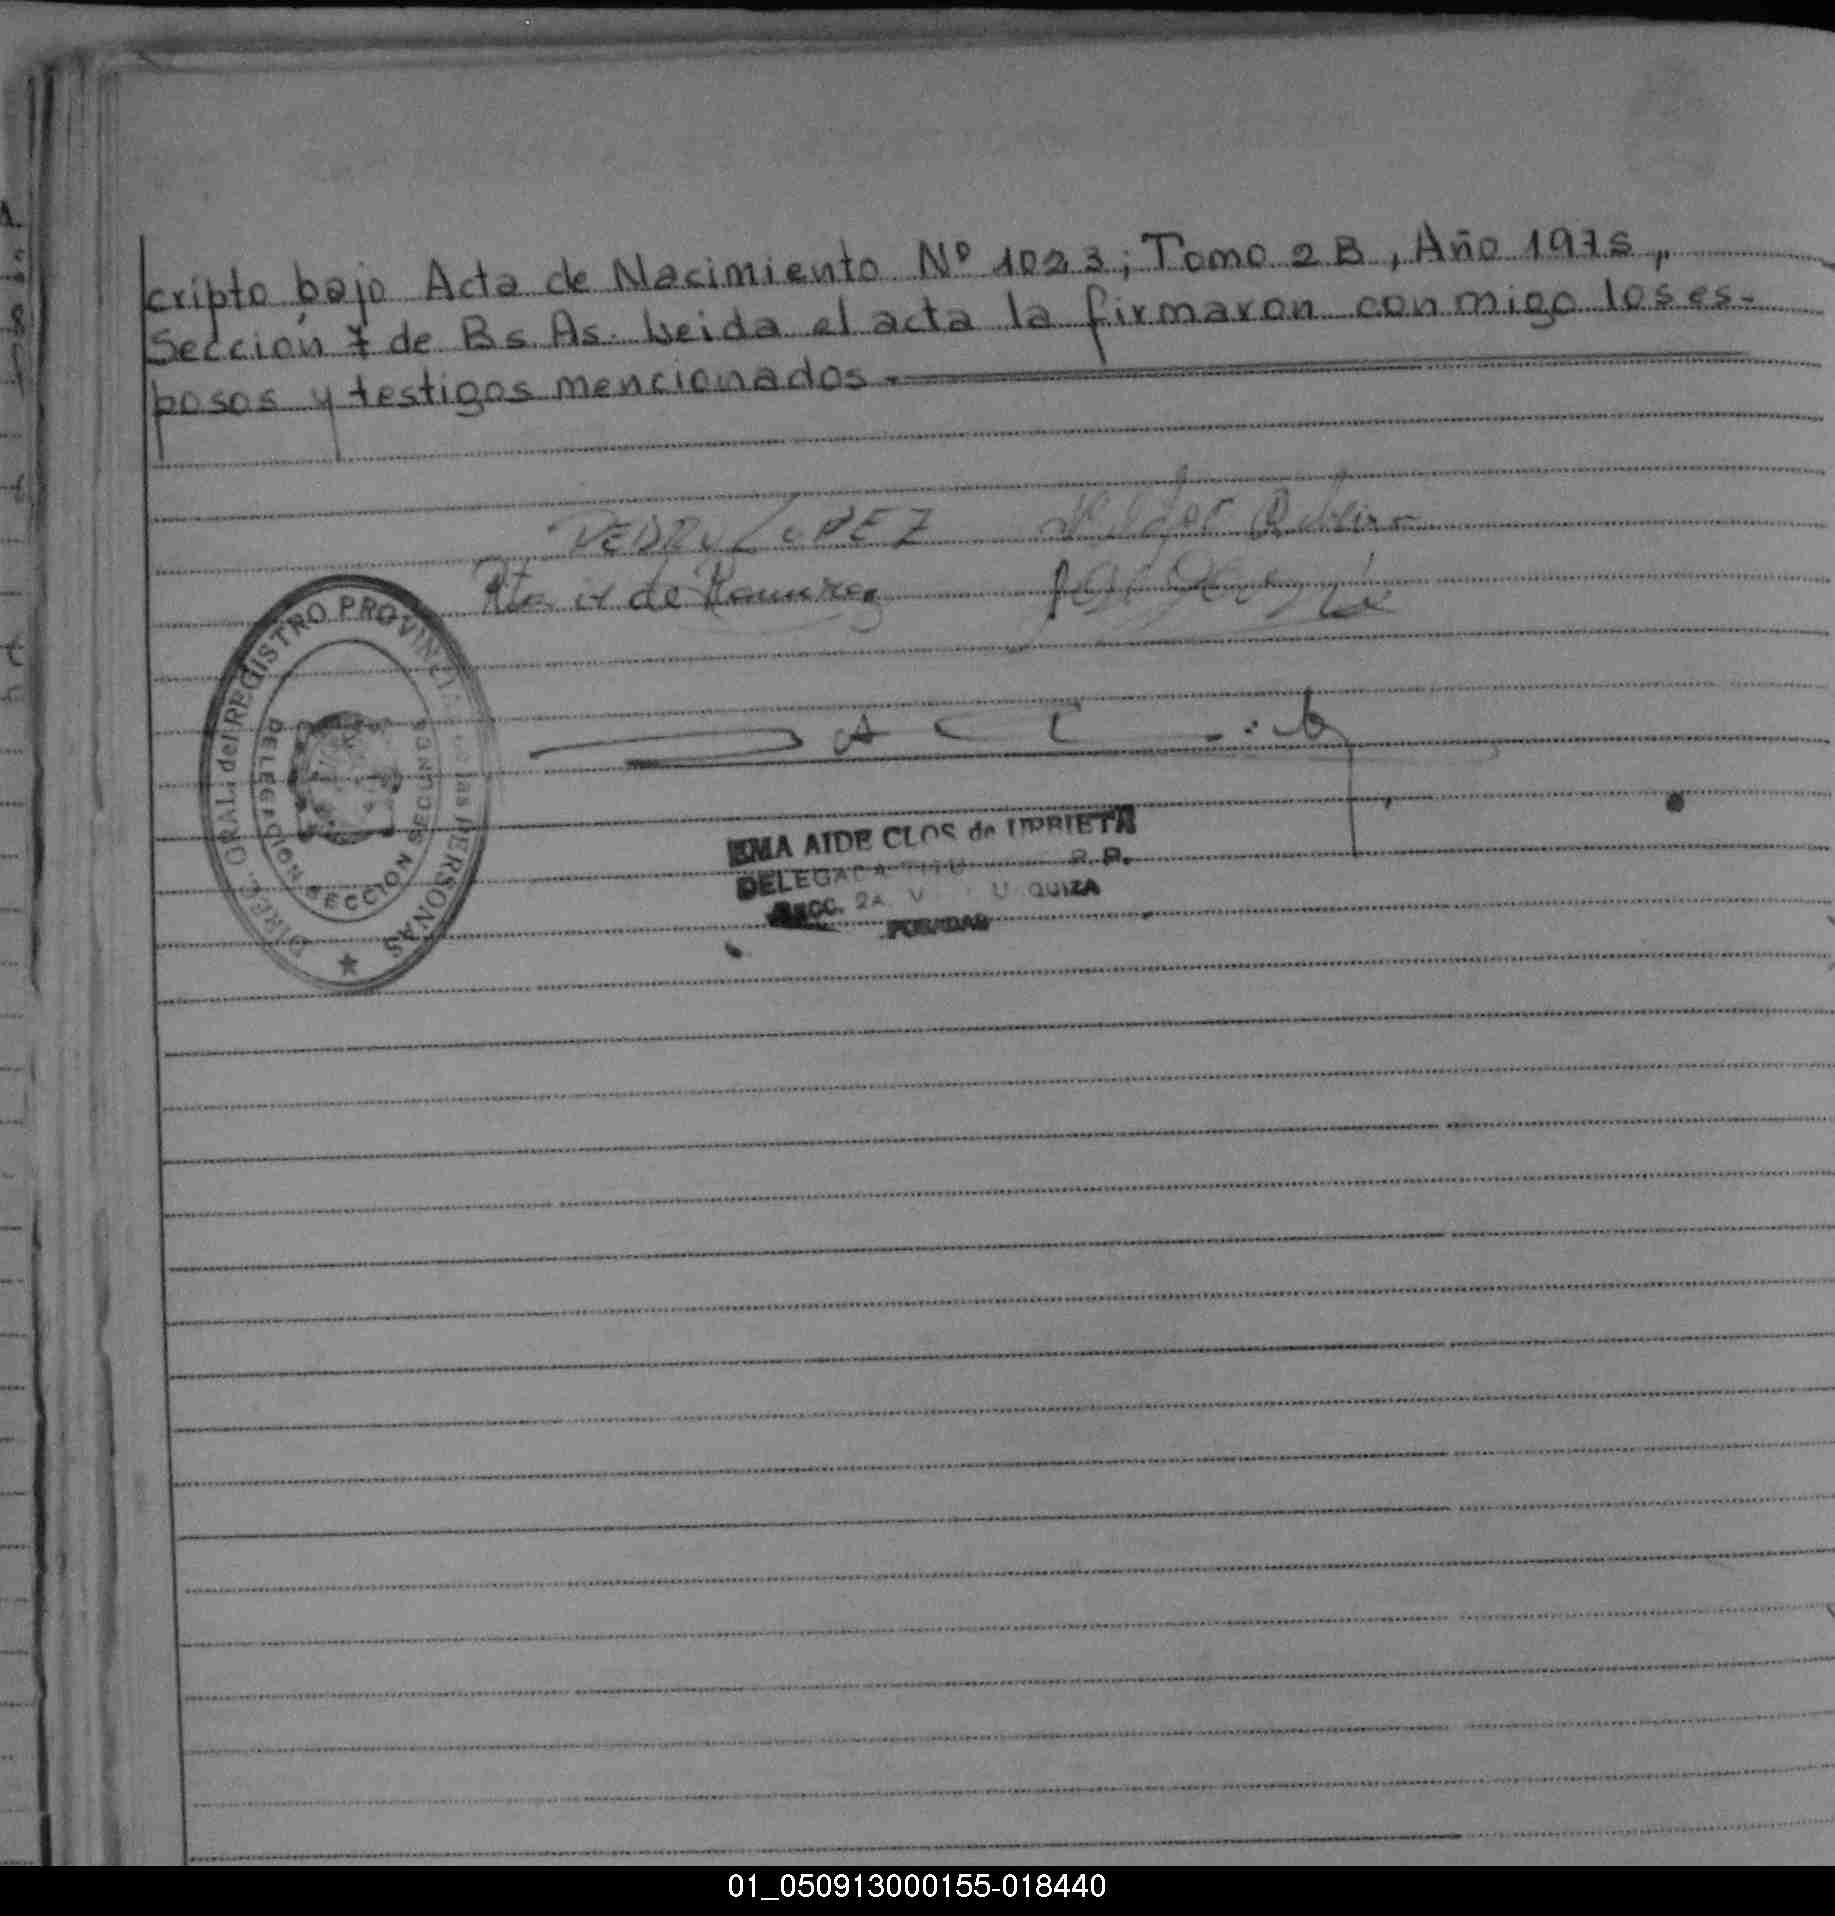 cripto bajo Acta de Nacimiento Nº 1023; Tomo 2B, Año 1975,
Sección 7 de Bs As. Leida el acta la firmaron conmigo los es-
posos y testigos mencionados.
PEDRO LOPEZ
de Ramirez
DIREC. GRAL. del REGISTRO PROVINCI las PERSONAS
DELEGACION SECCION SEGUNDA
EMA AIDE CLOS de URRIETA
DELEGADA R. P.
SECC. 2A. V U QUIZA
POSADAS
01_050913000155-018440